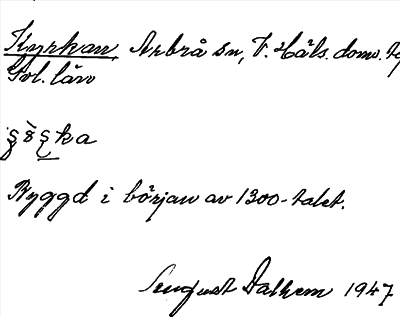 Kyrkan, Arbrå sn, V. Häls. doms.
Gvl. län
Byggd i början av 1300-talet.
August Dalhem 1947